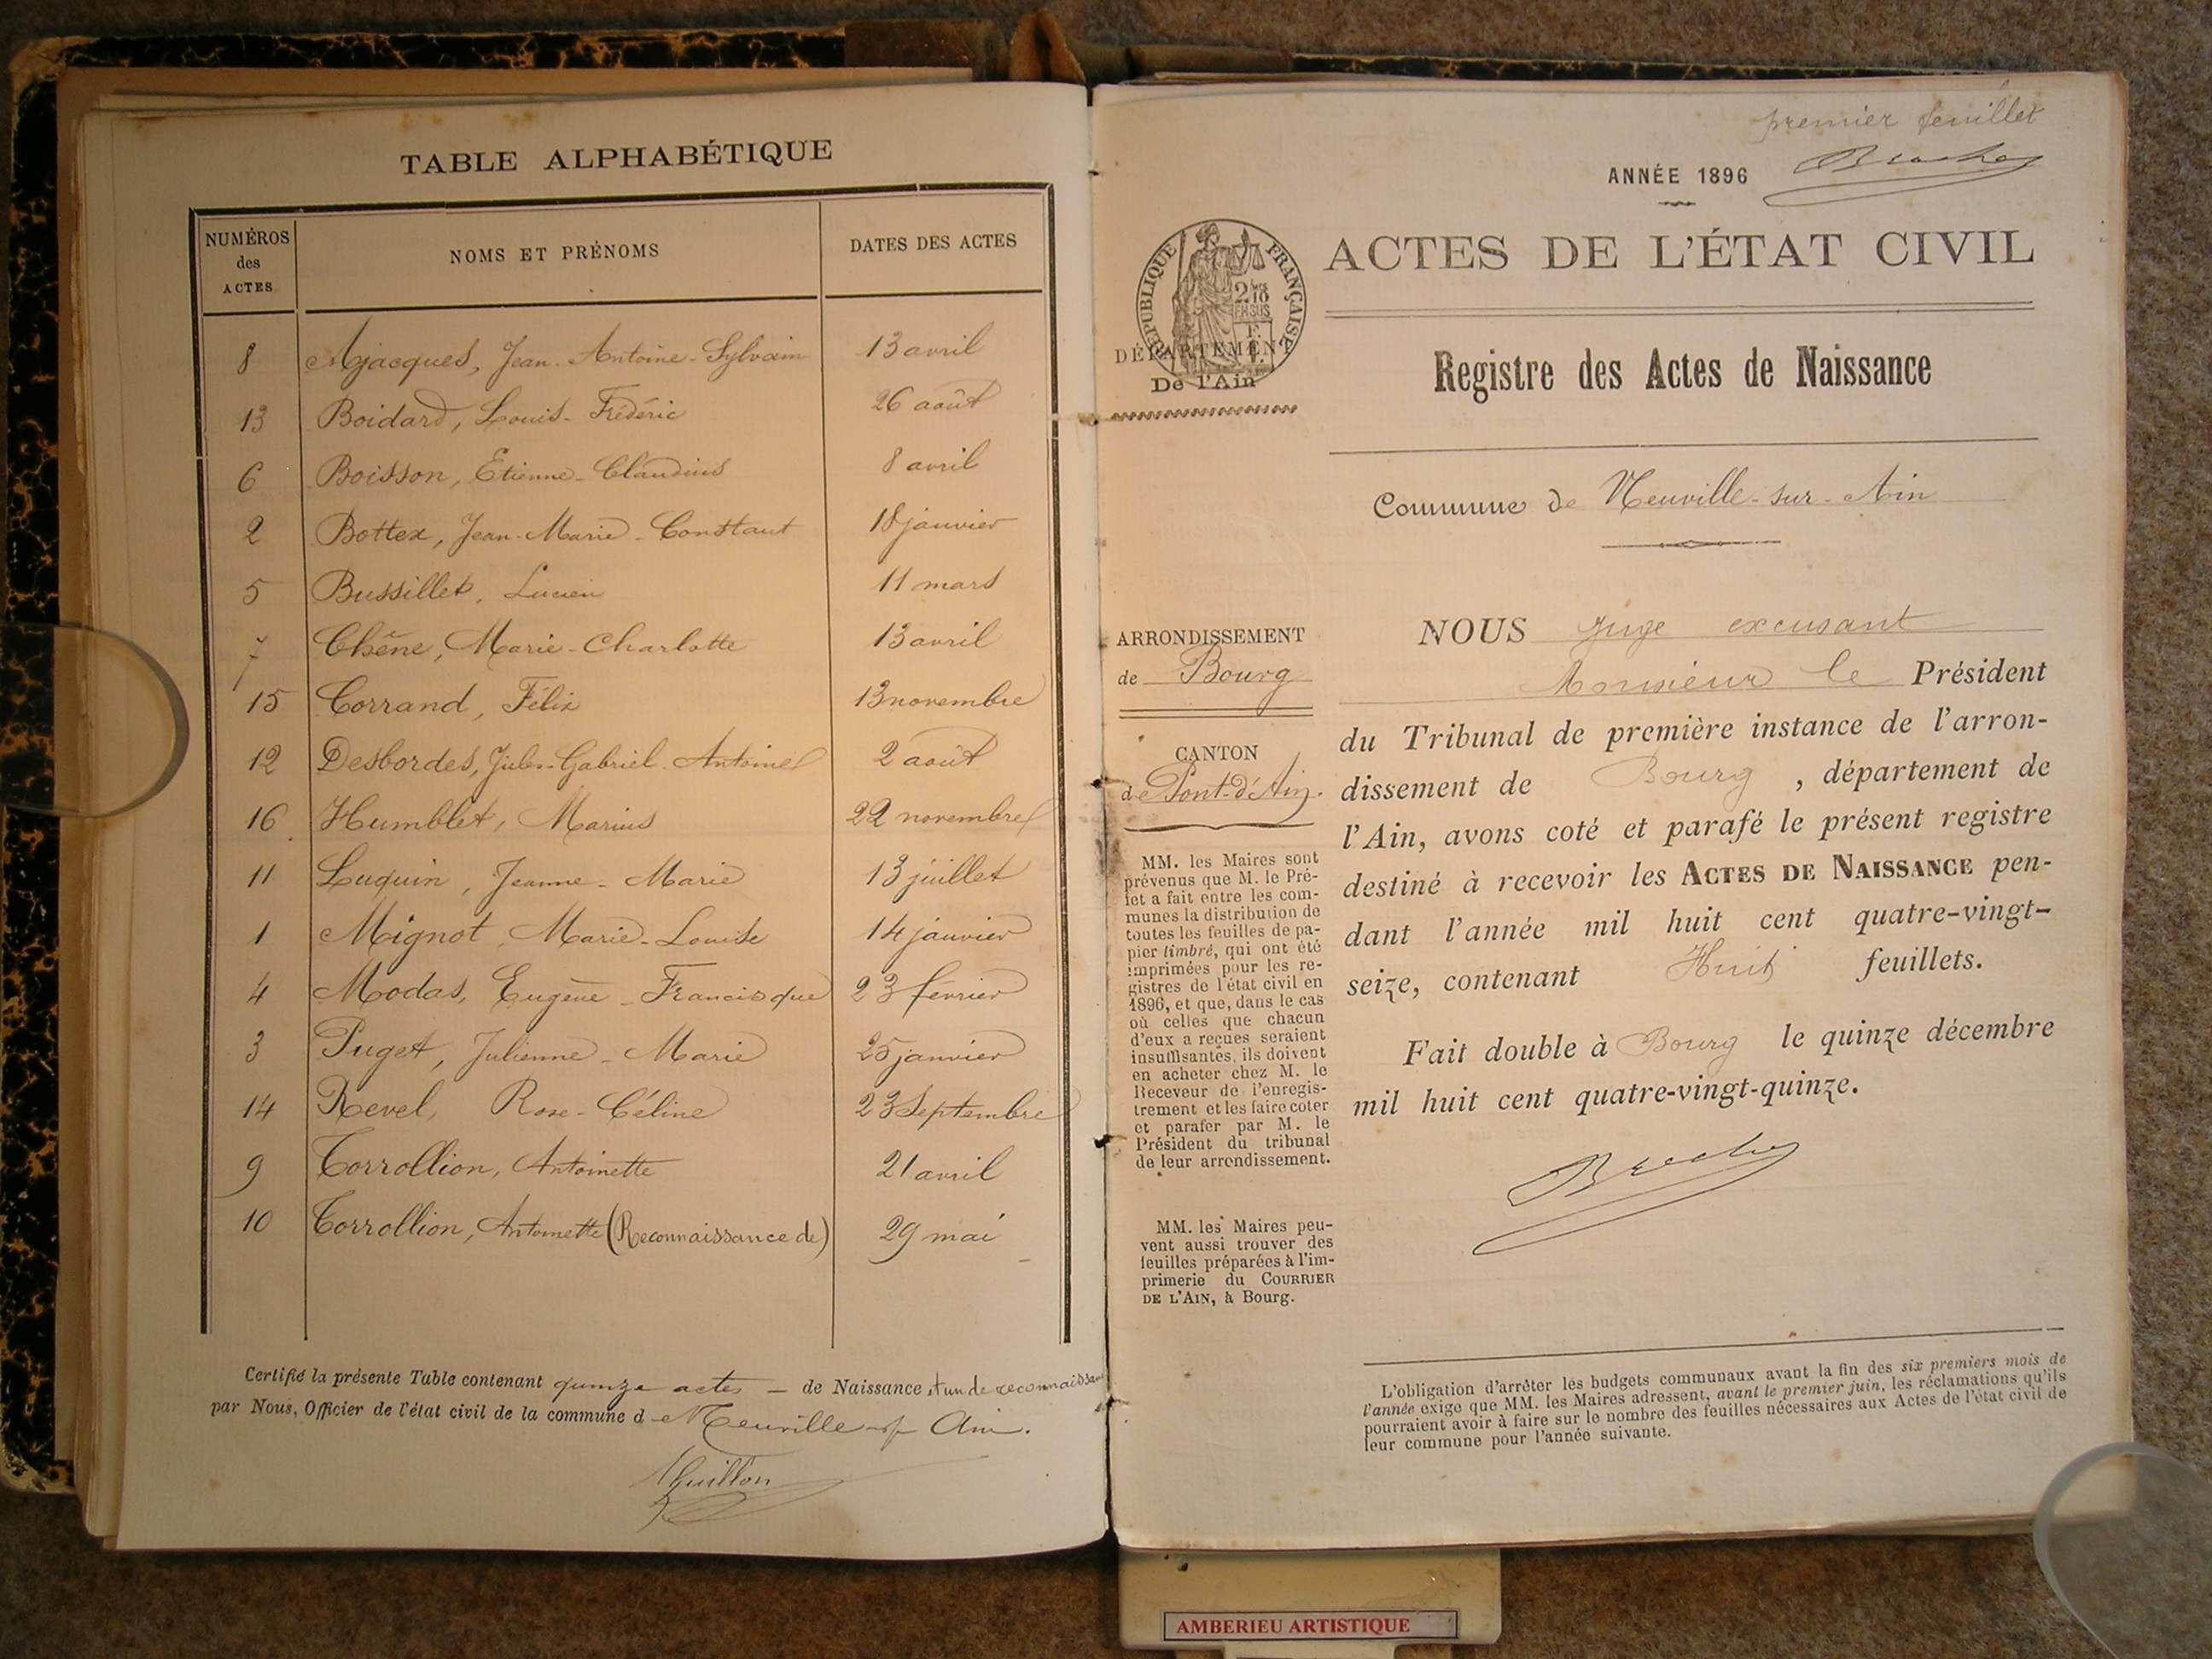 TABLE ALPHABÉTIQUE
NUMÉROS des ACTES
NOMS ET PRÉNOMS
DATES DES ACTES
8 Ajacques, Jean-Antoine-Sylvain 13 avril
13 Boidard, Louis-Frédéric 26 août
6 Boisson, Etienne-Claudius 8 avril
2 Bottex, Jean-Marie-Constant 18 janvier
5 Bussillet, Lucien 11 mars
7 Chêne, Marie-Charlotte 13 avril
15 Corrand, Félix 13 novembre
12 Desbordes, Jules-Gabriel-Antoine 2 août
16 Humblet, Marius 22 novembre
11 Luquin, Jeanne-Marie 13 juillet
1 Mignot, Marie-Louise 14 janvier
4 Modas, Eugène-Francisque 23 février
3 Puget, Julienne-Marie 25 janvier
14 Revel, Rose-Céline 23 Septembre
9 Torrollion, Antoinette 21 avril
10 Torrollion, Antoinette (Reconnaissance de) 29 mai
Certifié la présente Table contenant quinze actes — de Naissance et un de reconnaissance
par Nous, Officier de l'état civil de la commune de Neuville-s/-Ain.
premier feuillet
ANNÉE 1896
RÉPUBLIQUE FRANÇAISE
DÉPARTEMENT
De l'Ain
ACTES DE L'ÉTAT CIVIL
Registre des Actes de Naissance
Commune de Neuville-sur-Ain
ARRONDISSEMENT
de Bourg
CANTON
de Pont-d'Ain.
MM. les Maires sont
prévenus que M. le Pré-
fet a fait entre les com-
munes la distribution de
toutes les feuilles de pa-
pier timbré, qui ont été
imprimées pour les re-
gistres de l'état civil en
1896, et que, dans le cas
où celles que chacun
d'eux a reçues seraient
insuffisantes, ils doivent
en acheter chez M. le
Receveur de l'enregis-
trement et les faire coter
et parafer par M. le
Président du tribunal
de leur arrondissement.
MM. les Maires peu-
vent aussi trouver des
feuilles préparées à l'im-
primerie du COURRIER
DE L'AIN, à Bourg.
NOUS juge excusant
Monsieur le Président
du Tribunal de première instance de l'arron-
dissement de Bourg, département de
l'Ain, avons coté et parafé le présent registre
destiné à recevoir les ACTES DE NAISSANCE pen-
dant l'année mil huit cent quatre-vingt-
seize, contenant Huit feuillets.
Fait double à Bourg le quinze décembre
mil huit cent quatre-vingt-quinze.
L'obligation d'arrêter les budgets communaux avant la fin des six premiers mois de
l'année exige que MM. les Maires adressent, avant le premier juin, les réclamations qu'ils
pourraient avoir à faire sur le nombre des feuilles nécessaires aux Actes de l'état civil de
leur commune pour l'année suivante.
AMBERIEU ARTISTIQUE